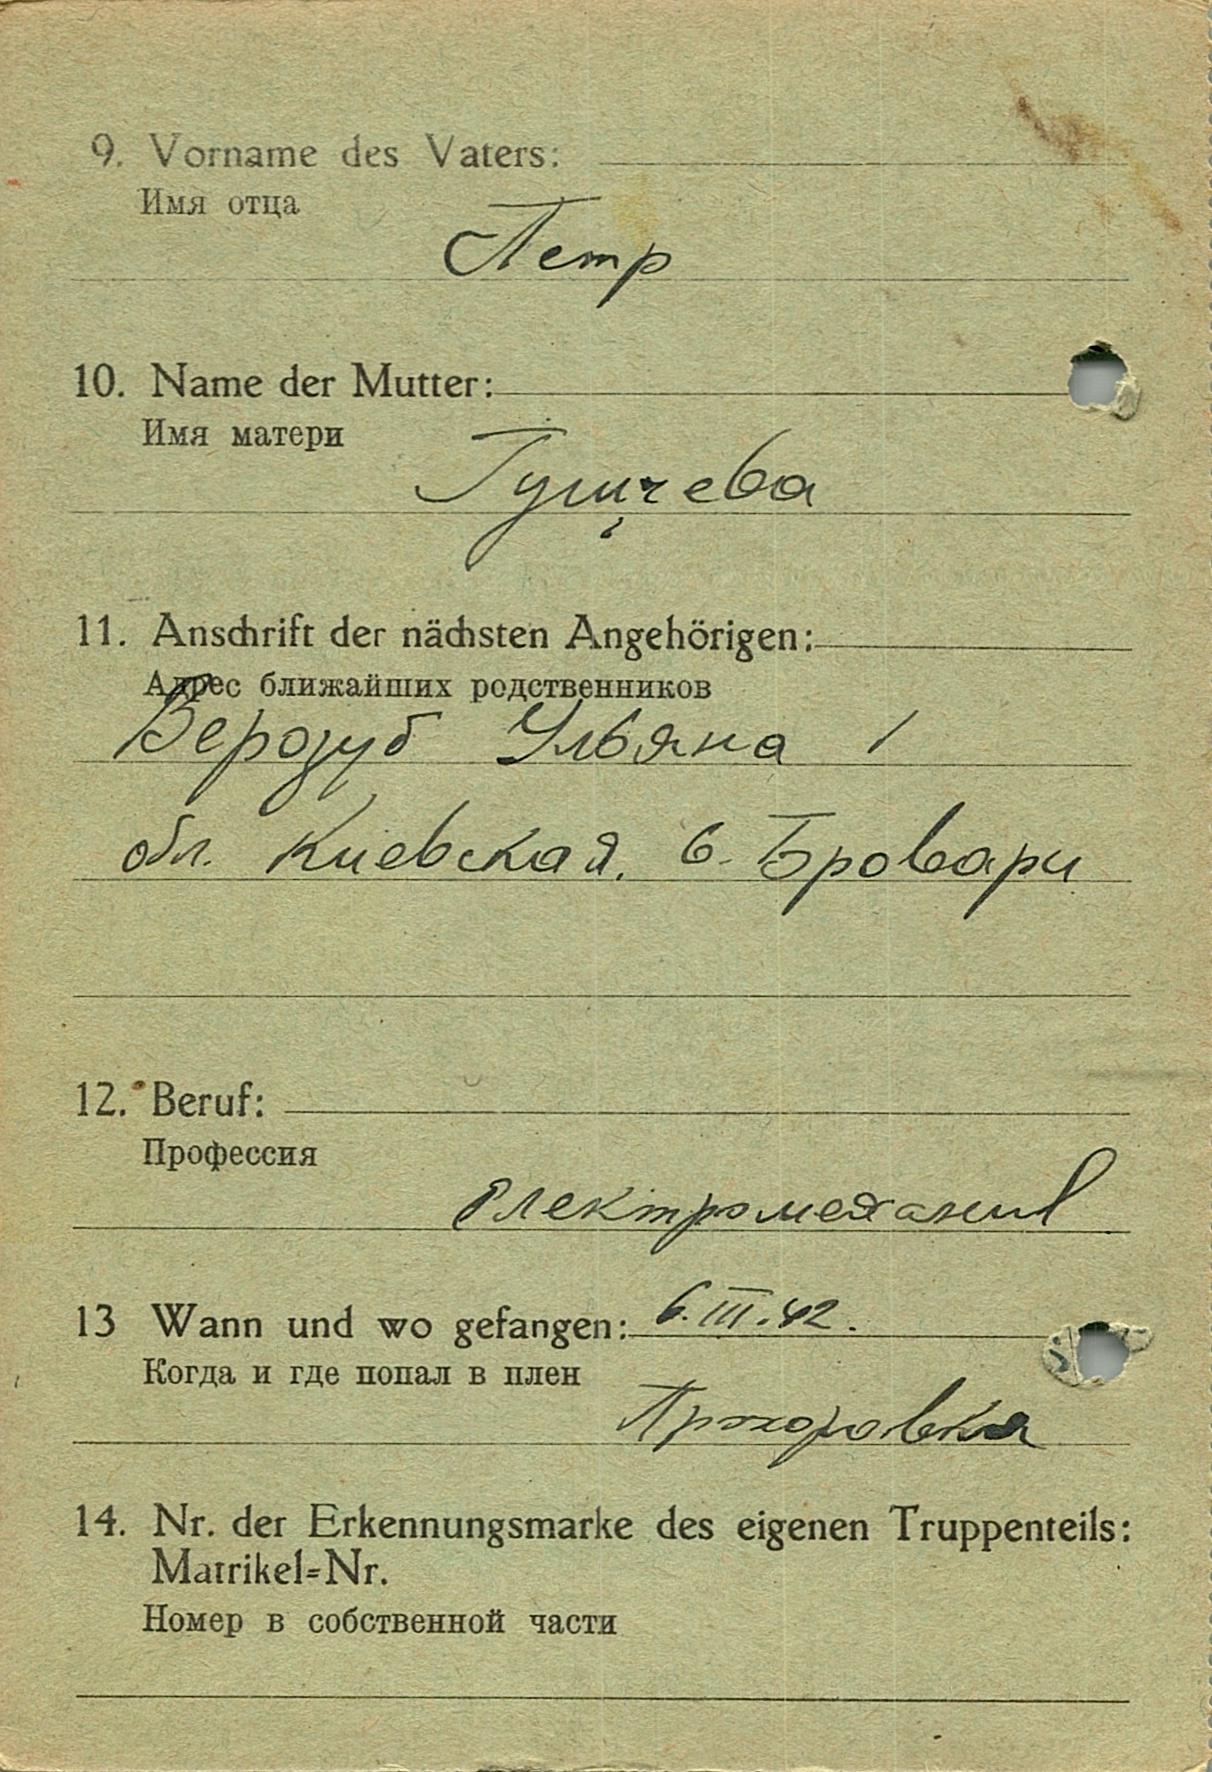 9. Vorname des Vaters:
Имя отца
Петр
10. Name der Mutter:
Имя матери
11. Anschrift der nächsten Angehörigen:
Адрес ближайших родственников
Верозуб Ульяна /
обл. Киевская. в. Бровари
12. Beruf:
Профессия
Електромеханик
13 Wann und wo gefangen: 6.III.42.
Когда и где попал в плен
Прохоровка
14. Nr. der Erkennungsmarke des eigenen Truppenteils:
Matrikel=Nr.
Номер в собственной части